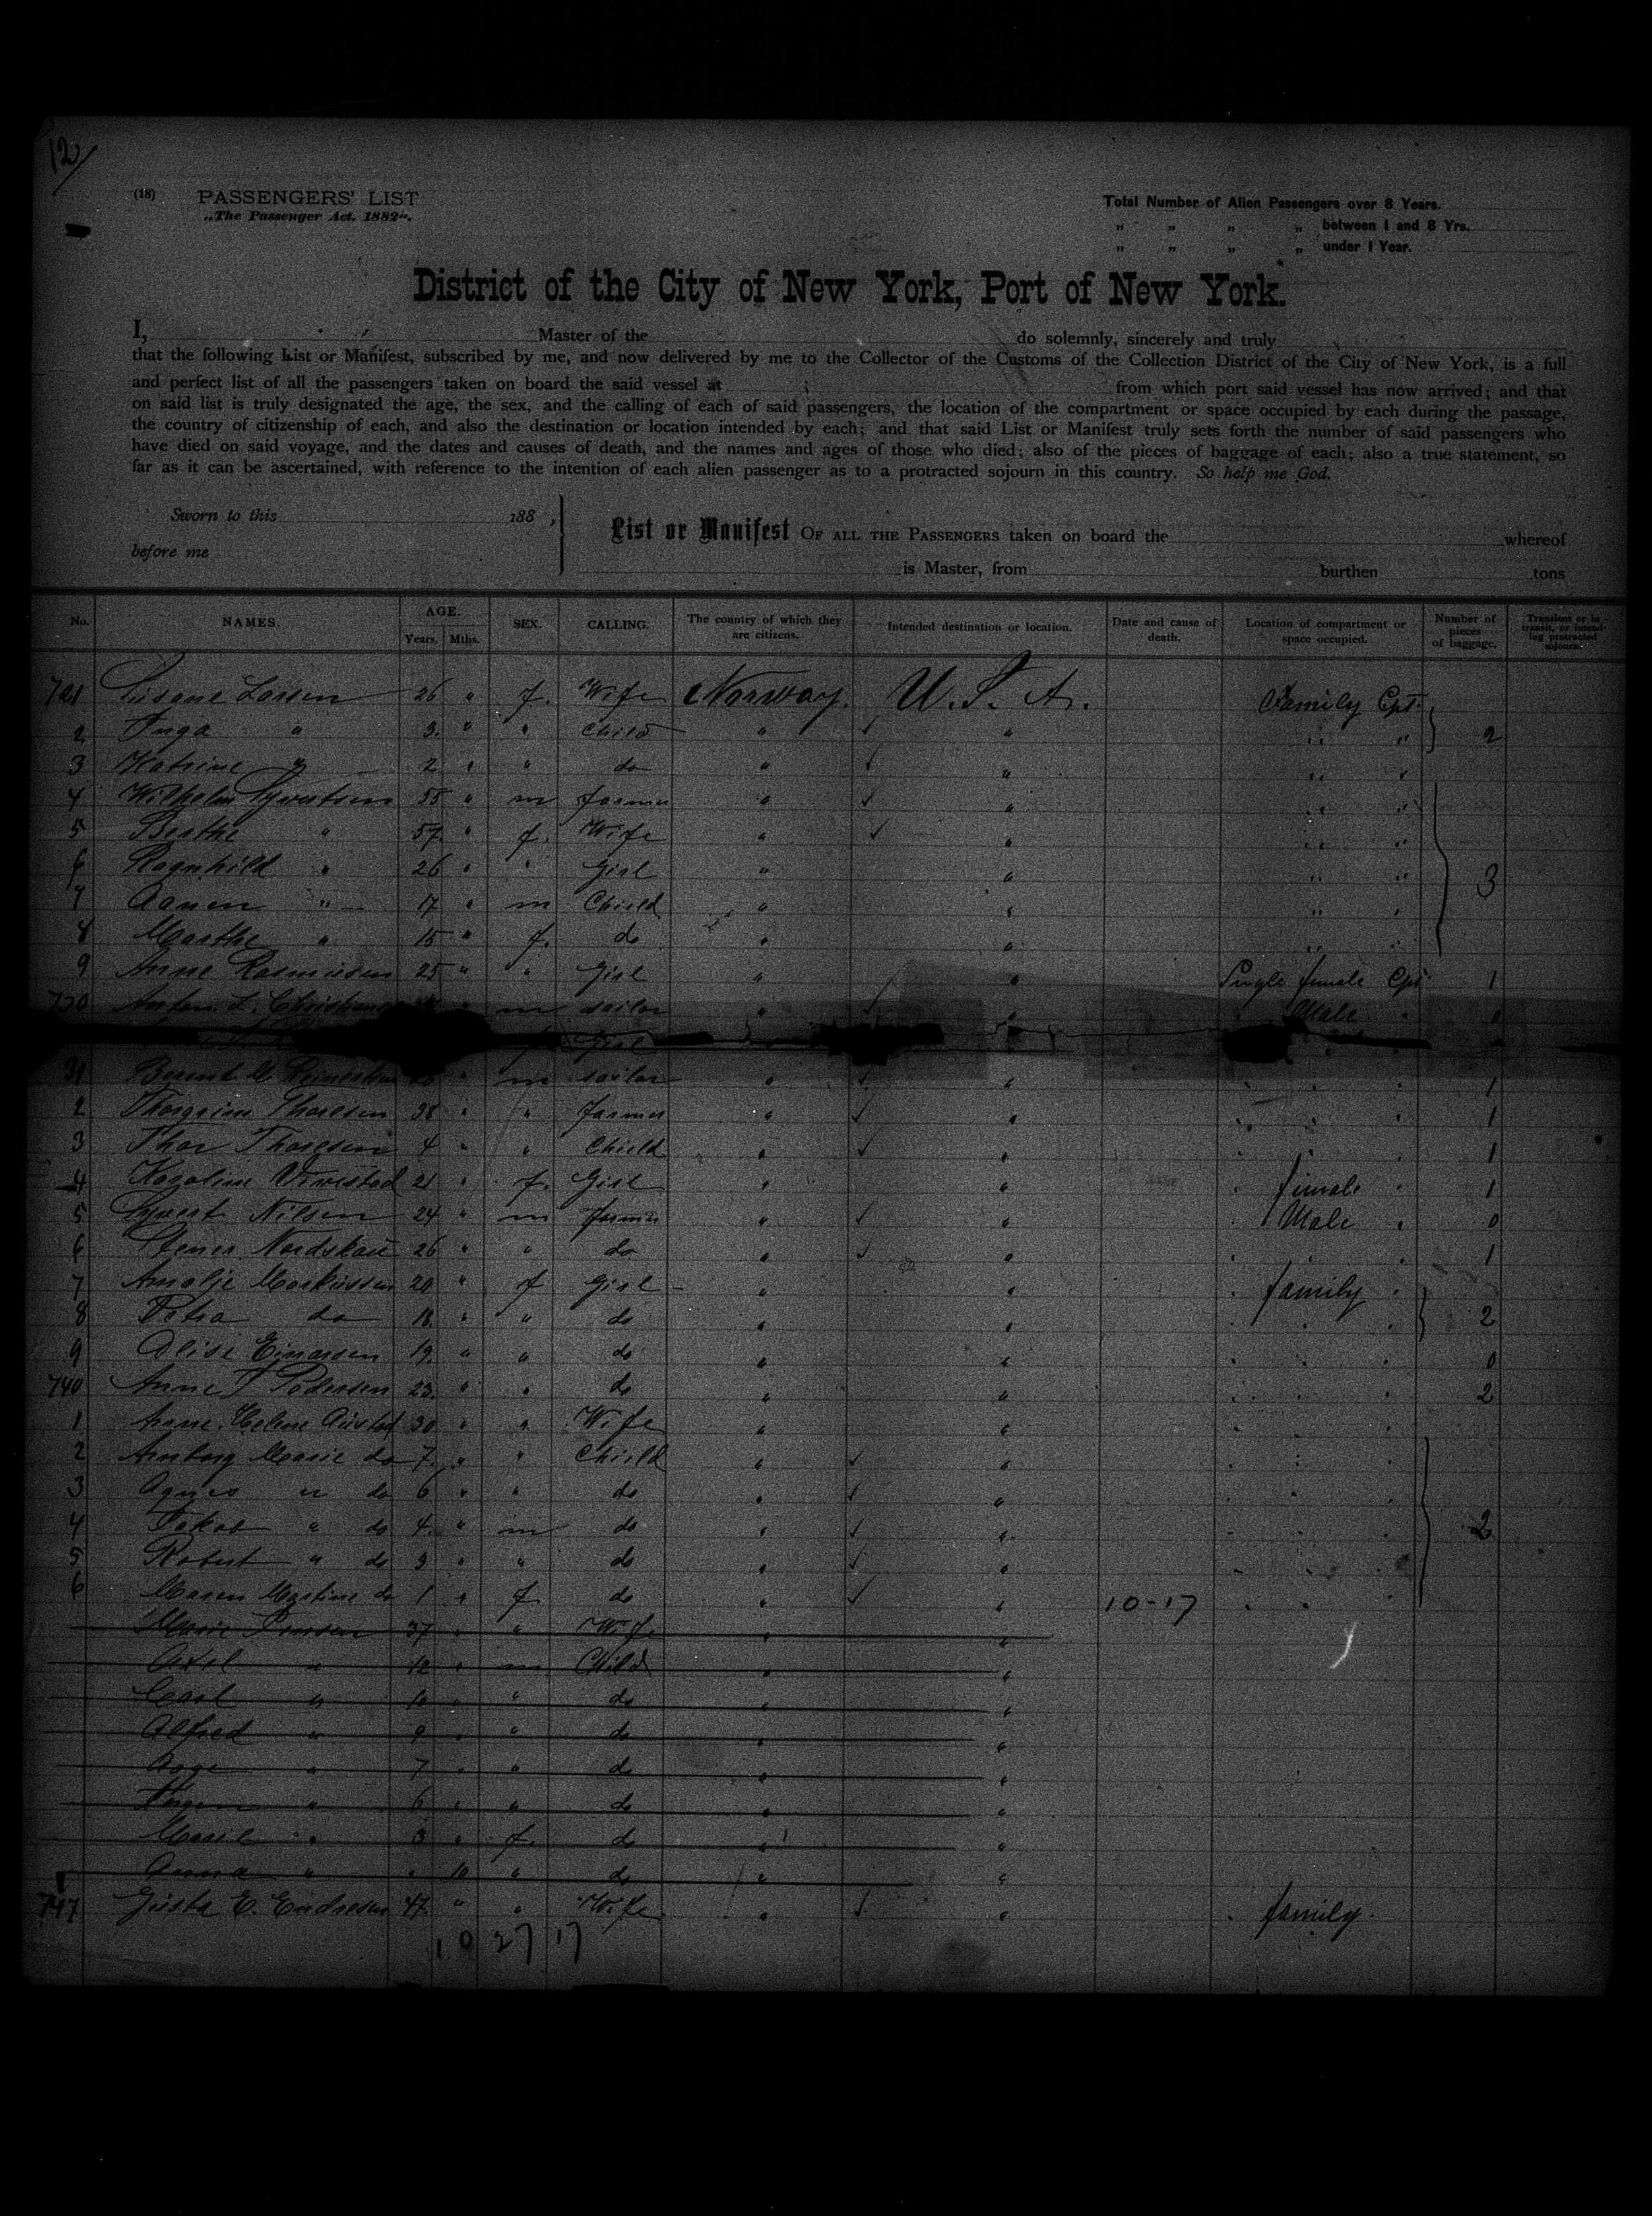 12/
(18) PASSENGERS' LIST
„The Passenger Act. 1882".
Total Number of Alien Passengers over 8 Years.
„ „ „ „ between 1 and 8 Yrs.
„ „ „ „ under 1 Year.
District of the City of New York, Port of New York.
I, Master of the do solemnly, sincerely and truly
that the following List or Manifest, subscribed by me, and now delivered by me to the Collector of the Customs of the Collection District of the City of New York, is a full
and perfect list of all the passengers taken on board the said vessel at from which port said vessel has now arrived; and that
on said list is truly designated the age, the sex, and the calling of each of said passengers, the location of the compartment or space occupied by each during the passage,
the country of citizenship of each, and also the destination or location intended by each; and that said List or Manifest truly sets forth the number of said passengers who
have died on said voyage, and the dates and causes of death, and the names and ages of those who died; also of the pieces of baggage of each; also a true statement, so
far as it can be ascertained, with reference to the intention of each alien passenger as to a protracted sojourn in this country. So help me God.
Sworn to this 188 ,
before me
List or Manifest OF ALL THE PASSENGERS taken on board the whereof
is Master, from burthen tons
No. NAMES. AGE. Years. Mths. SEX. CALLING. The country of which they are citizens. Intended destination or location. Date and cause of death. Location of compartment or space occupied. Number of pieces of baggage. Transient or in transit, or intending protracted sojourn.
721 Larsen 26 " f. Wife Norway. U. S. A. Family Cpt.
2 Inga " 3. " " Child " " " " 2
3 Katrine " 2 " " do " " " "
4 Wilhelm 55 " m farmer " " " "
5 Berthe " 57. " f. Wife " " " "
6 Ragnhild " 26 " " Girl " " " " 3
7 Aanen " 17 " m Chield " " " "
8 Marthe " 15 " f. do " " " "
9 Anne Rasmussen 25 " " Girl " " Single female Cpt. 1
730 Anton L. m sailor " " Male "
Girl
31 Bernt " m sailor " " " " 1
2 Thorgrim Thoresen 38 " " farmer " " " " 1
3 Thor Thoresen 4 " " Chield " " " " 1
4 Karoline 21 " f. Girl " " " female " 1
5 Sywert Nilsen 24 " m farmer " " " Male " 0
6 Stener 26 " " do " " " " 1
7 Amalje Markussen 20 " f Girl " " " family "
8 Petra do 18. " " do " " " " 2
9 Elise Einarsen 19. " " do " " " " 0
740 Anne T Pedersen 23. " " do " " " " 2
1 Anne Helene 30 " " Wife " " " "
2 Marie do 7. " " Chield " " " "
3 Agnes " do 6 " " do " " " "
4 Jakob " do 4. " m do " " " " 2
5 Robert " do 3 " " do " " " "
6 Maren Martine do 1 " f. do " " 10-17 " "
Marie 37 " " Wife " "
Axel " 12 " m Child " "
Carl " 10 " " do " "
Alfred " 9 " " do " "
Aage " 7 " " do " "
" 6 " " do " "
" 3 " f. do " "
Anna " " 10 " do " "
747 E. Endresen 47. " " Wife " " " family.
1 0 27 17